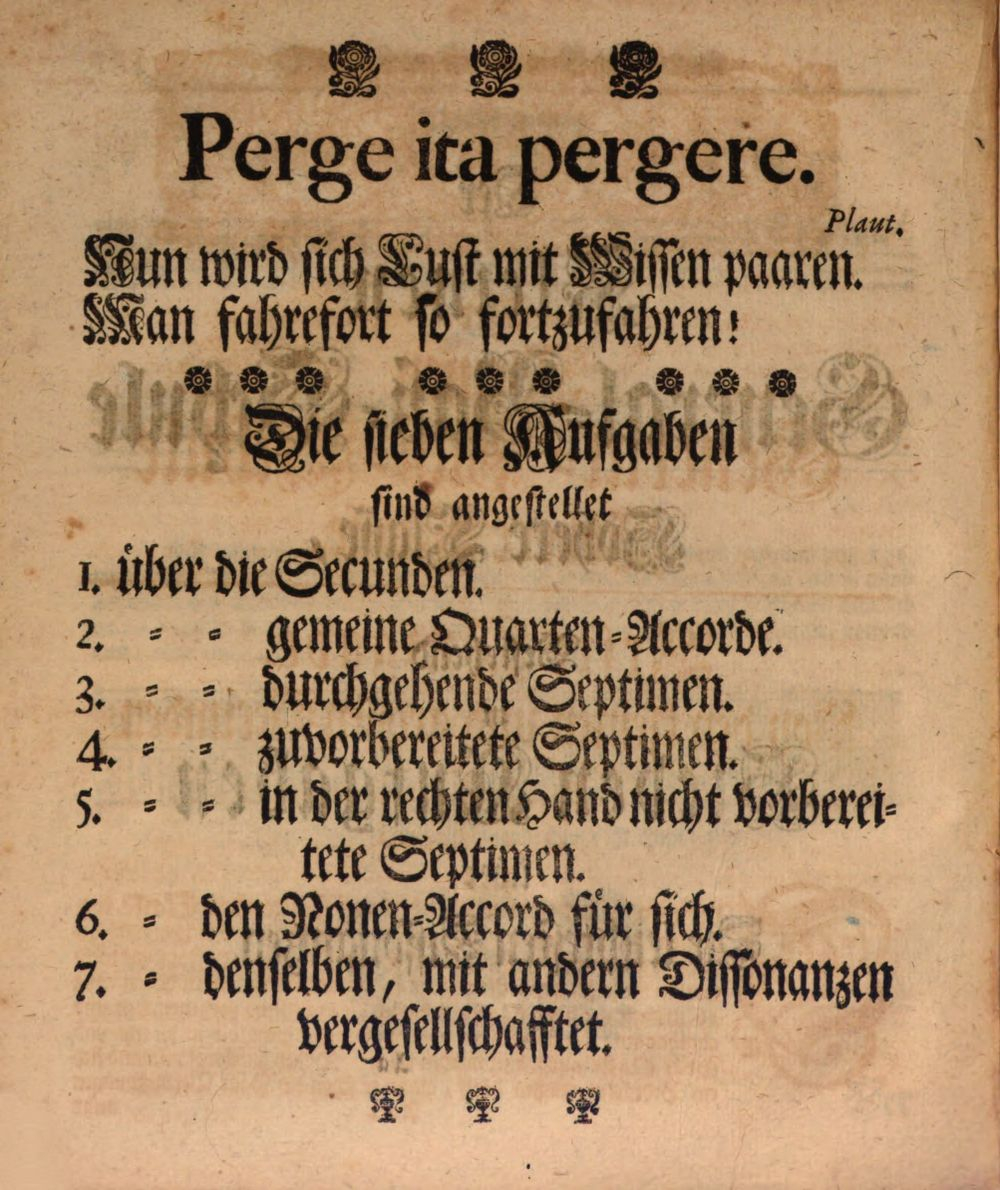 Perge ita pergere.
Plaut.
Nun wird sich Lust mit Wissen paaren.
Man fahrefort so fortzufahren!
Die sieben Aufgaben
sind angestellet
1. über die Secunden.
2. = = gemeine Quarten=Accorde.
3. = = durchgehende Septimen.
4. = = zuvorbereitete Septimen.
5. = = in der rechten Hand nicht vorberei=
tete Septimen.
6. = den Nonen=Accord für sich.
7. = denselben, mit andern Dissonanzen
vergesellschafftet.